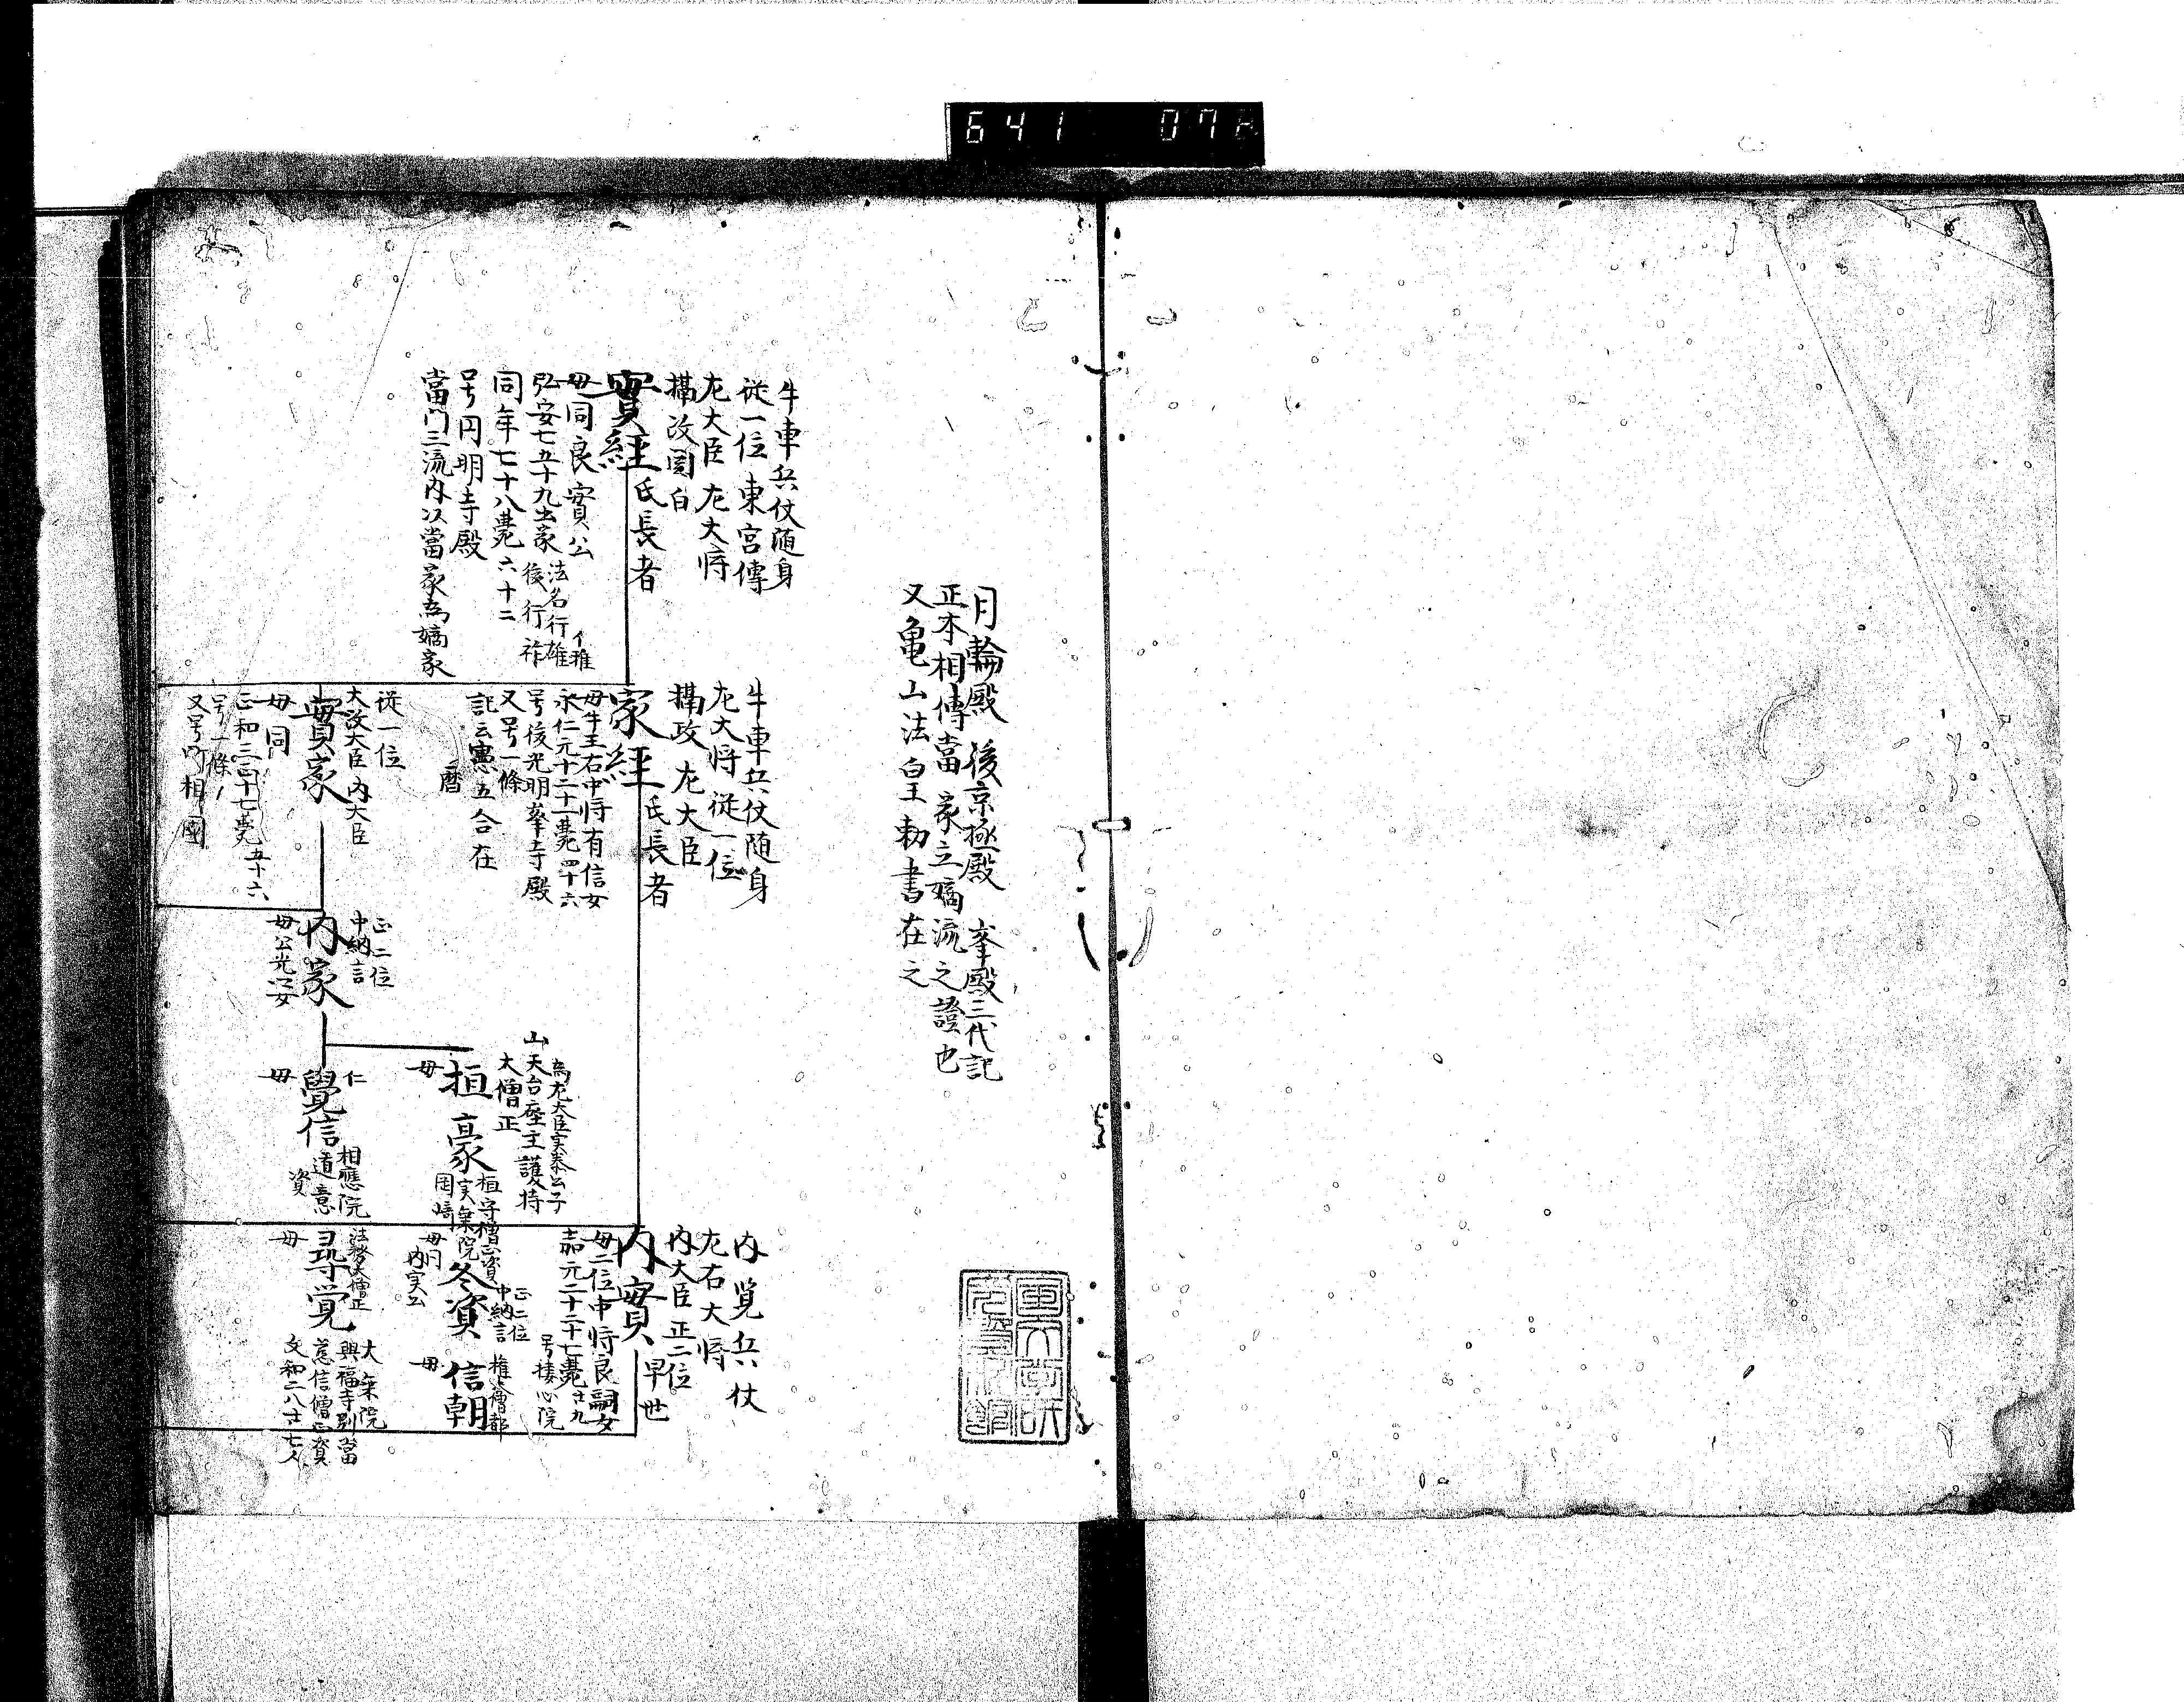 641 07
月輪殿 後京極殿 峯殿三代記
正本相傳當家立嫡流之證也
又亀山法皇勅書在之
牛車兵仗随身
従一位 東宮傳
左大臣 左大将
摂政関白
實経 氏長者
母同良實公
弘安七五十九出家 法名行雄 イ雅 後行祚
同年七十八薨 六十二
号円明寺殿
當門三流内以當家為嫡家
牛車兵仗随身
左大将 従一位
摂政 左大臣
家経 氏長者
母牛王右中将有信女
永仁元十二十一薨 四十六
号後光明峯寺殿
又号一條
記云 五合在
暦
従一位
大政大臣 内大臣
實家
母同
正和三 薨 五十六
号一條
又号町相國
正二位
中納言
内家
母公光公女
為左大臣実泰公子
山 天台座主護持
大僧正
桓豪
桓守僧正資
実乗院
岡崎
母
仁
覺信
相應院
道意
資
母
内覧兵仗
左右大将
内大臣 正二位
内實 早世
母二位中将良嗣女
嘉元二十二十七薨 廿九
号棲心院
正二位
中納言
冬資
母同
内実公
権僧都
信朝
母
法務大僧正
尋覚
大乗院
興福寺別當
慈信僧正資
母